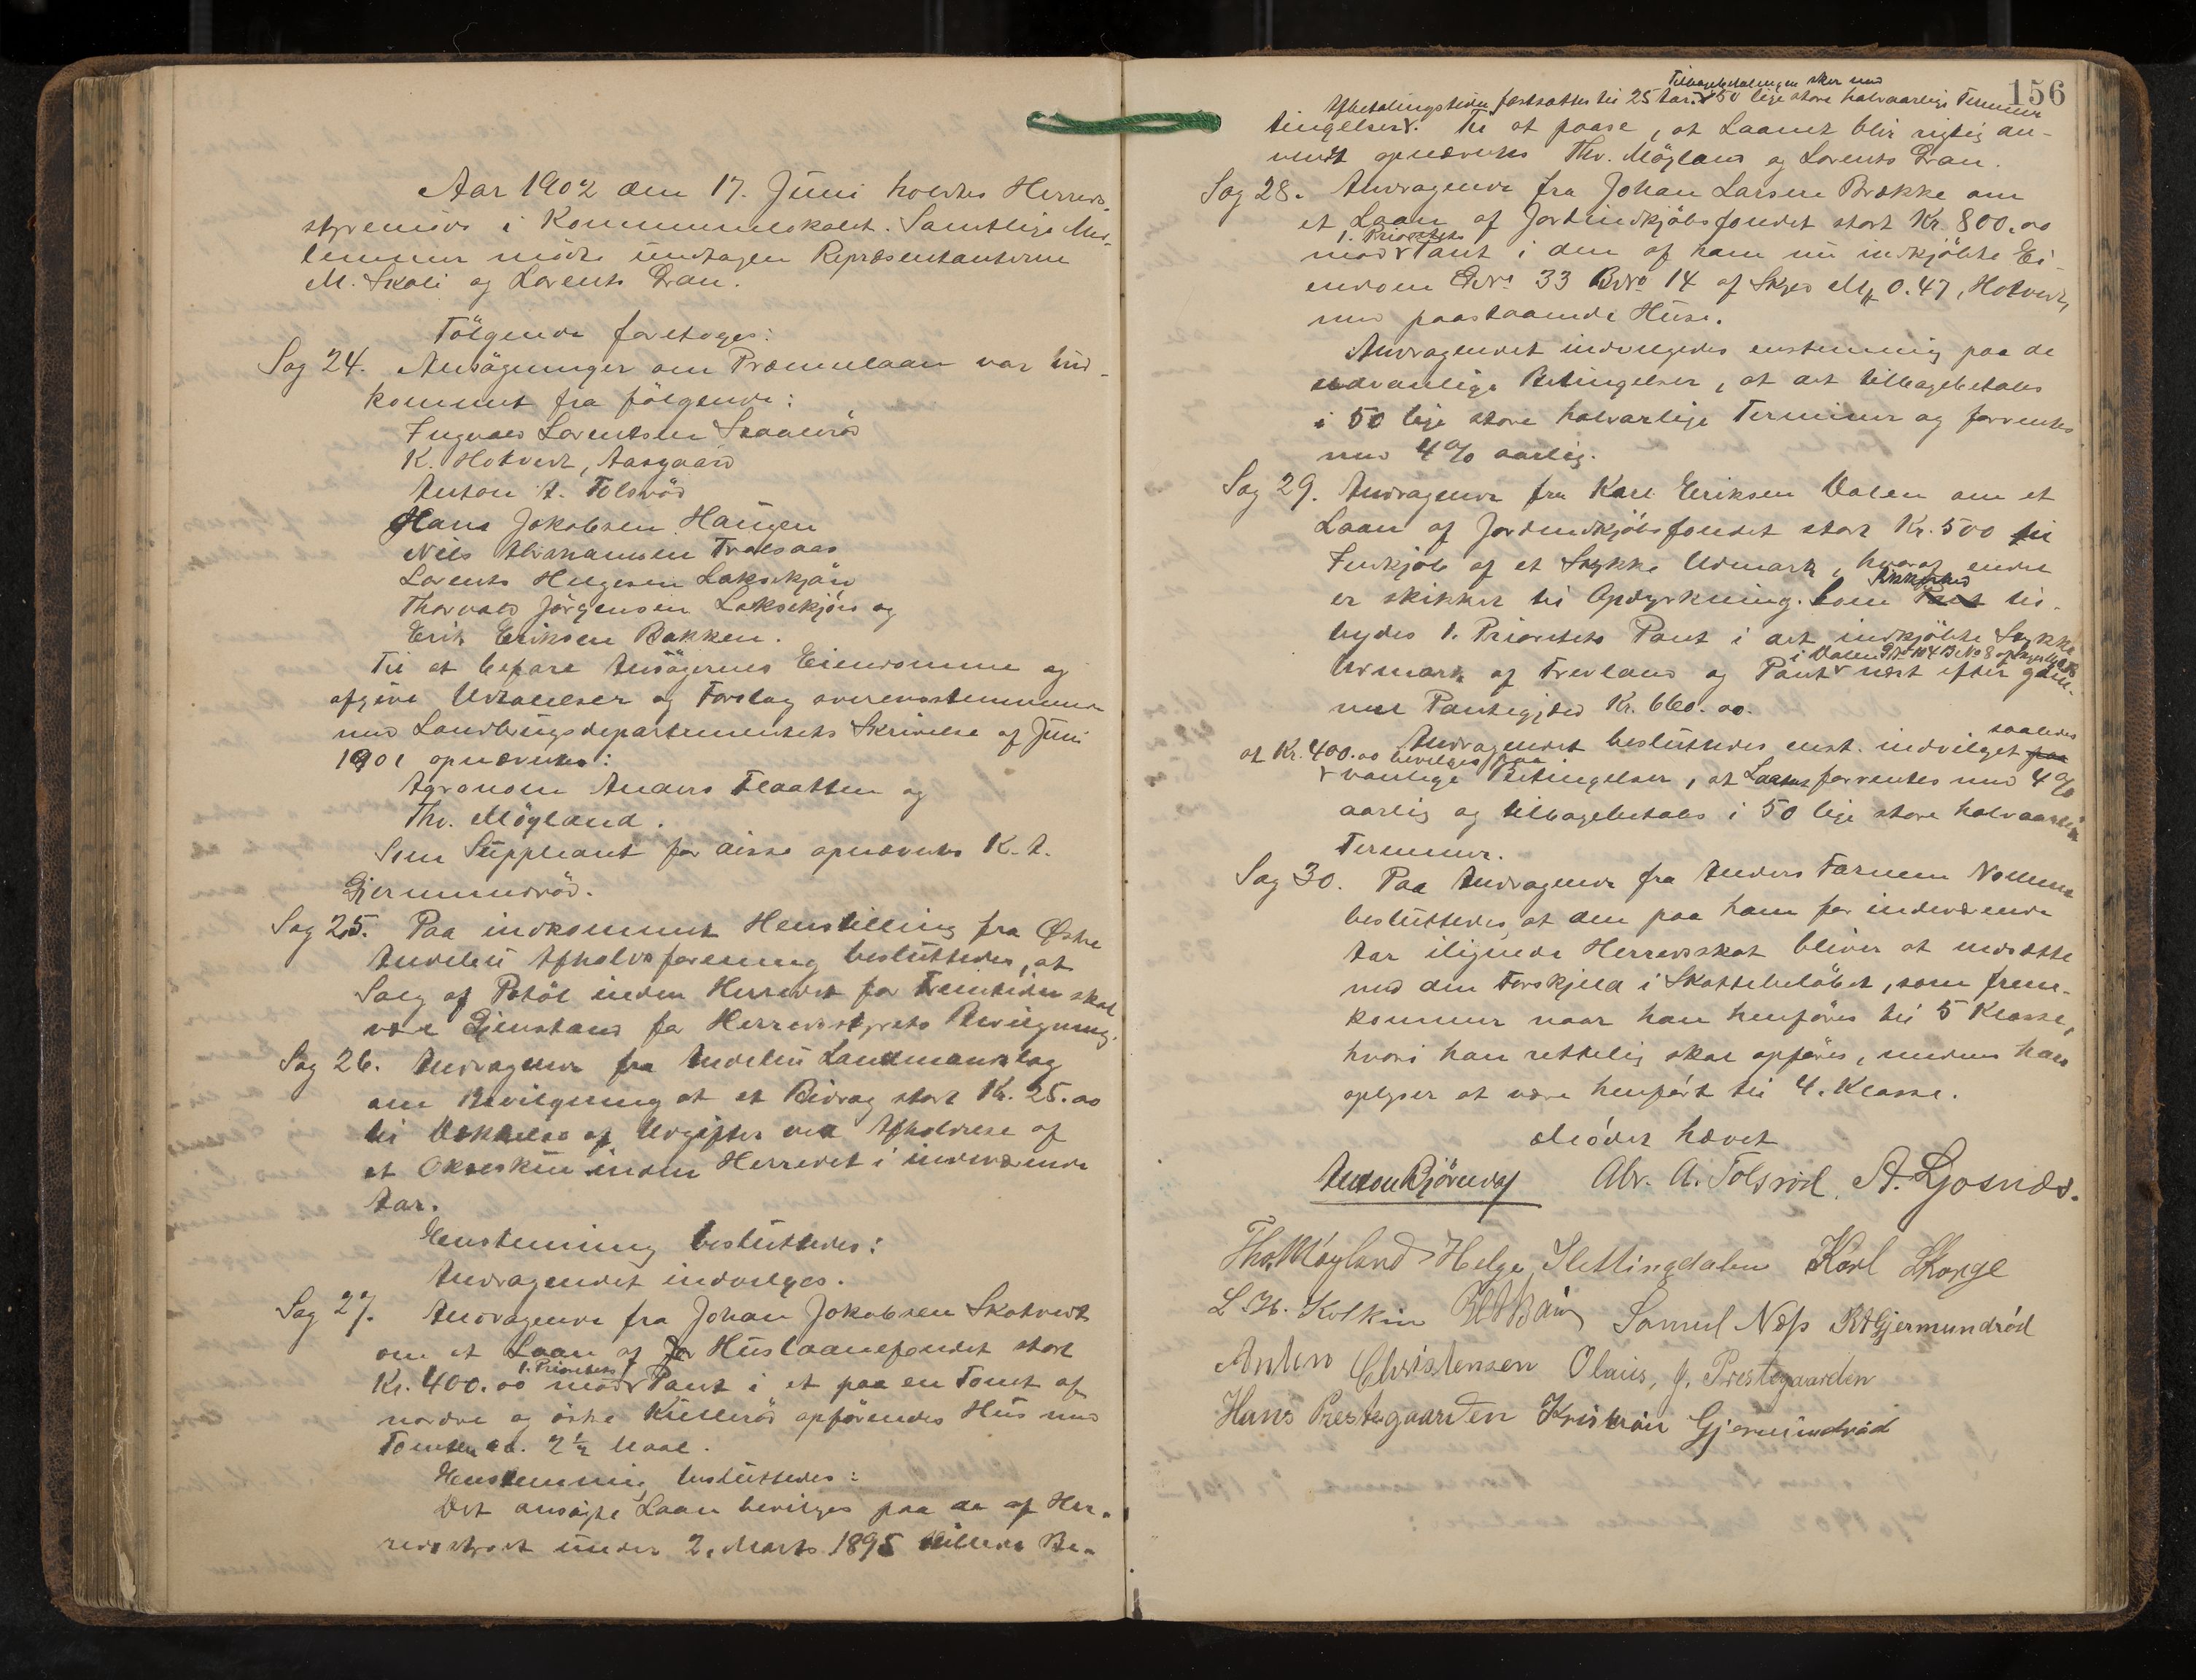 Aar 1902 den 17. Juni holdtes Herreds-
styremöde i Kommunelokalet. Samtlige Med-
lemmer mödte undtagen Repræsentanterne
M. Skoli og Lorents Dran.
Fölgende foretoges:
Sag 24. Ansögninger om Præmielaan var ind-
kommet fra fölgende:
Ingvald Lorentsen
K. Hotvedt, Aasgaard
Anton A. Tolsröd
Hans Jakobsen Haugen
Nils Abrahamsen Trolsaas
Lorents Helgesen Lakskjön
Thorvald Jörgensen Lakskjön og
Erik Eriksen Bakken.
Til at befare Ansögernes Eiendomme og
afgive Udtalelser og Forslag overensstemmende
med Landbrugsdepartementets Skrivelse af Juni
1901 opnævntes:
Agronom Anders Flaatten og
Thv. Möyland.
Som Suppleant for disse opnævntes K. A.
Gjermundröd.
Sag 25. Paa indkommet Henstilling fra Østre
Andebu Afholdsforening besluttedes, at
Salg af Potöl inden Herredet for Fremtiden skal
være Gjenstand for Herredsstyrets Bevilgning.
Sag 26. Andragende fra Andebu Landmandslag
om Bevilgning at et Bidrag stort Kr. 25.00
til Dækkelse af Udgifter ved Afholdelse af
et Okseskue inden Herredet i indeværende
Aar.
Enstemmig besluttedes:
Andragendet indvilges.
Sag 27. Andragende fra Johan Jakobsen Skotvedt
om et Laan af Huslaanefondet stort
Kr. 400.00 mod 1. Prioritets Pant i et paa en Tomt af
nordre og östre Kulleröd opförendes Hus med
Tomten ca. 2 1/2 Maal.
Enstemmig besluttedes:
Det ansögte Laan bevilges paa de af Her-
redsstyret under 2. Marts 1895 stillede Be-
156
tingelser. Afbetalingstiden fastsættes til 25 Aar. Tilbagebetalingen sker med 50 lige store halvaarlige Terminer
Til at paase, at Laanet blir rigtig an-
vendt opnævntes Thv. Möyland og Lorents Dran.
Sag 28. Andragende fra Johan Larsen Brække om
et Laan af Jordindkjöbsfondet stort Kr. 800.00
mod 1. Prioritets Pant i den af ham nu indkjöbte Ei-
endom Gno 33 Bno 14 af Skyld Mk 0.47, Hotvedt,
med paastaaende Huse.
Andragendet indvilgedes enstemmig paa de
sedvanlige Betingelser, at det tilbagebetales
i 50 lige store halvarlige Terminer og forrentes
med 4% aarlig.
Sag 29. Andragende fra Karl Eriksen Dalen om et
Laan af Jordindkjöbsfondet stort Kr. 500 til
Indkjöb af et Stykke Udmark, hvoraf endel
er skikket til Opdyrkning. Som Sikkerhed til-
bydes 1. Prioritets Pant i det indkjöbte Stykke
Udmark af Trevland og Pant i Dalen Gno 104 Bno 8 næst efter gam-
mel Pantegjæld Kr. 660.00.
Andragendet besluttedes enst. indvilget saaledes
at Kr. 400.00 bevilges paa
vanlige Betingelser, at Laanet forrentes med 4%
aarlig og tilbagebetales i 50 lige store halvaarlige
Terminer.
Sag 30. Paa Andragende fra Anders Farmen
besluttedes, at den paa ham for indeværende
Aar ilignede Herredsskat bliver at nedsætte
med den Forskjel i Skattebelöbet, som frem-
kommer naar han henföres til 5 Klasse,
hvori han rettelig skal opföres, medens han
oplyser at være henfört til 4. Klasse.
Mödet hævet
Anton Bjørndal Abr. A. Tolsröd. A. Gjosnæs.
Thv. Möyland Helge Slettingdalen Karl Skorge
L. H. Kolkin Samuel Næss R A Gjermundröd
Anton Christensen Olaus J. Prestegaarden
Hans Prestegaarden Kristian Gjermundröd